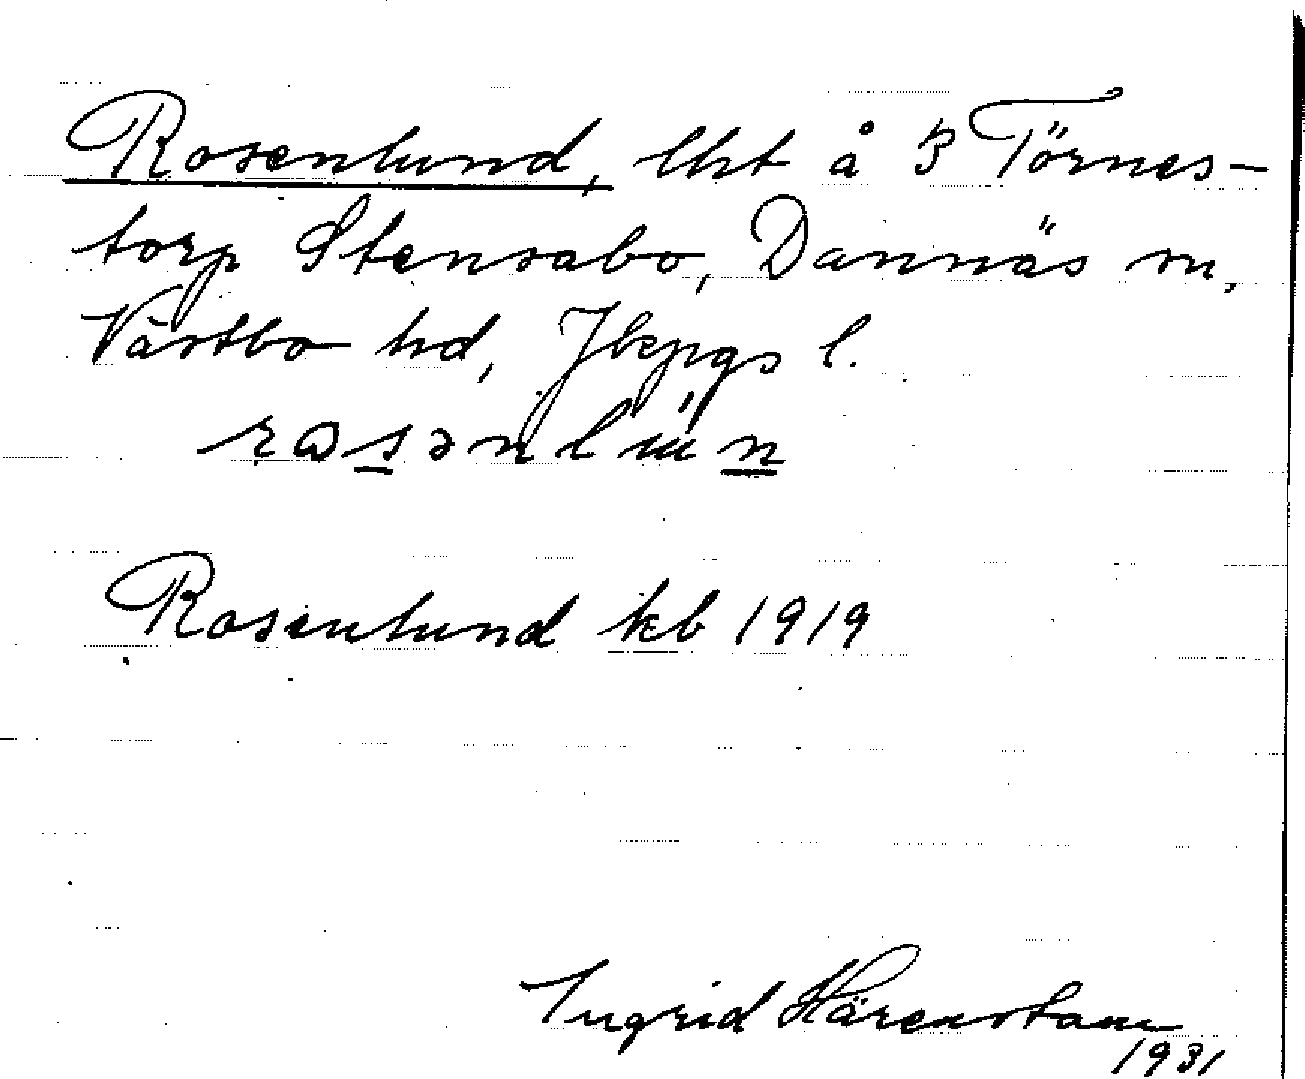 Rosenlund, lht å 3 Törnes-
torp Stensabo, Dannäs sn,
Västbo hd, Jkpgs l.
Rosenlund kb 1919
Ingrid Härenstam
1931